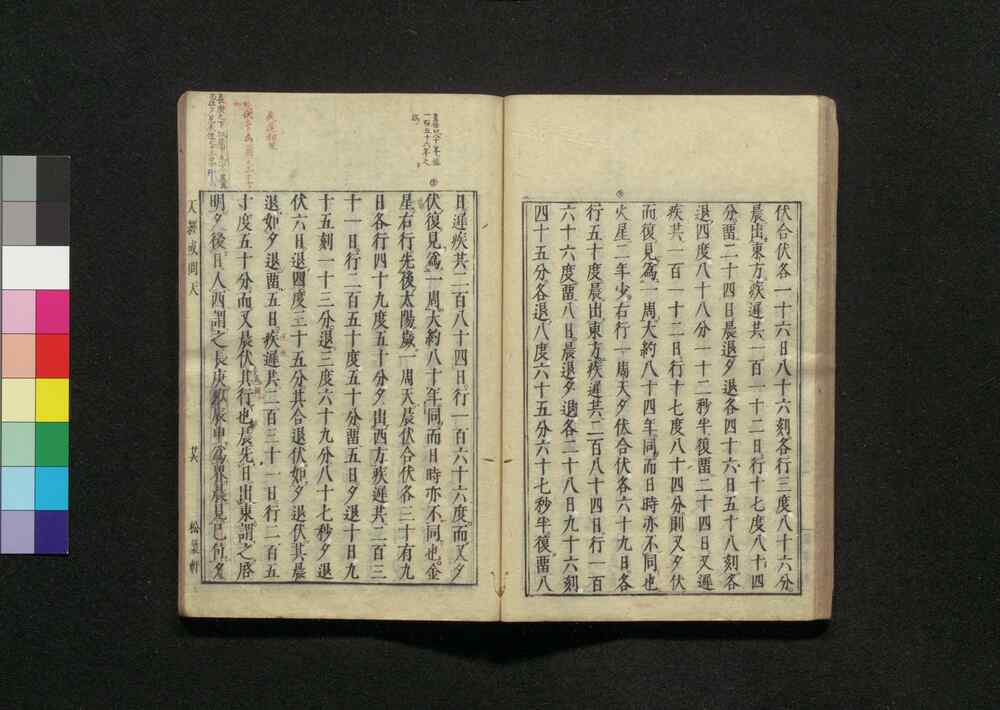 伏合伏各一十六日八十六刻各行三度八十六分
晨出東方疾遲共一百一十二日行十七度八十四
分畱二十四日晨退夕退各四十六日五十八刻各
退四度八十八分一十二秒半復畱二十四日又遲
疾共一百一十二日行十七度八十四分則又夕伏
而復見爲一周大約八十四年同而日時亦不同也
火星二年少右行一周天夕伏合伏各六十九日各
行五十度晨出東方疾遲共二百八十四日行一百
六十六度畱八日晨退夕退各二十八日九十六刻
四十五分各退八度六十五分六十七秒半復畱八
日遲疾共二百八十四日行一百六十六度而又夕
伏復見爲一周大約八十年同而日時亦不同也金
星右行先後太陽歲一周天晨伏合伏各三十有九
日各行四十九度五十分夕出西方疾遲共二百三
十一日行二百五十度五十分畱五日夕退十日九
十五刻一十三分退三度六十九分八十七秒夕退
伏六日退四度三十五分其合退伏如夕退伏其晨
退如夕退畱五日疾遲共二百三十一日行二百五
十度五十分而又晨伏其行也晨先日出東謂之啓
明夕後日入西謂之長庚以辰申爲界晨見巳位夕
天經或問天
松葉軒